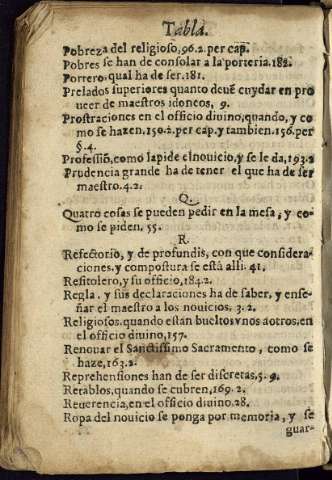 Tabla.
Pobreza del religioso, 96.2. per cap̃.
Pobres se han de consolar a la porteria. 182.
Portero, qual ha de ser. 181.
Prelados superiores quanto deuẽ cuydar en pro
ueer de maestros idoneos, 9.
Prostraciones en el officio diuino, quando, y co
mo se hazen, 150.2. per cap. y tambien. 156. per
§. 4.
Professiõ, como la pide el nouicio, y se le da, 193.2
Prudencia grande ha de tener el que ha de ser
maestro. 4.2.
Q.
Quatro cosas se pueden pedir en la mesa, y co-
mo se piden, 55.
R.
Refectorio, y de profundis, con que considera-
ciones, y compostura se està alli. 41.
Refitolero, y su officio, 184.2.
Regla, y sus declaraciones ha de saber, y ense-
ñar el maestro a los nouicios, 3.2.
Religiosos, quando estàn bueltos vnos a otros, en
el officio diuino, 157.
Renouar el Sanctissimo Sacramento, como se
haze, 163.2.
Reprehensiones han de ser discretas, 5.9.
Retablos, quando se cubren, 169.2.
Reuerencia, en el officio diuino. 28.
Ropa del nouicio se ponga por memoria, y se
guar-